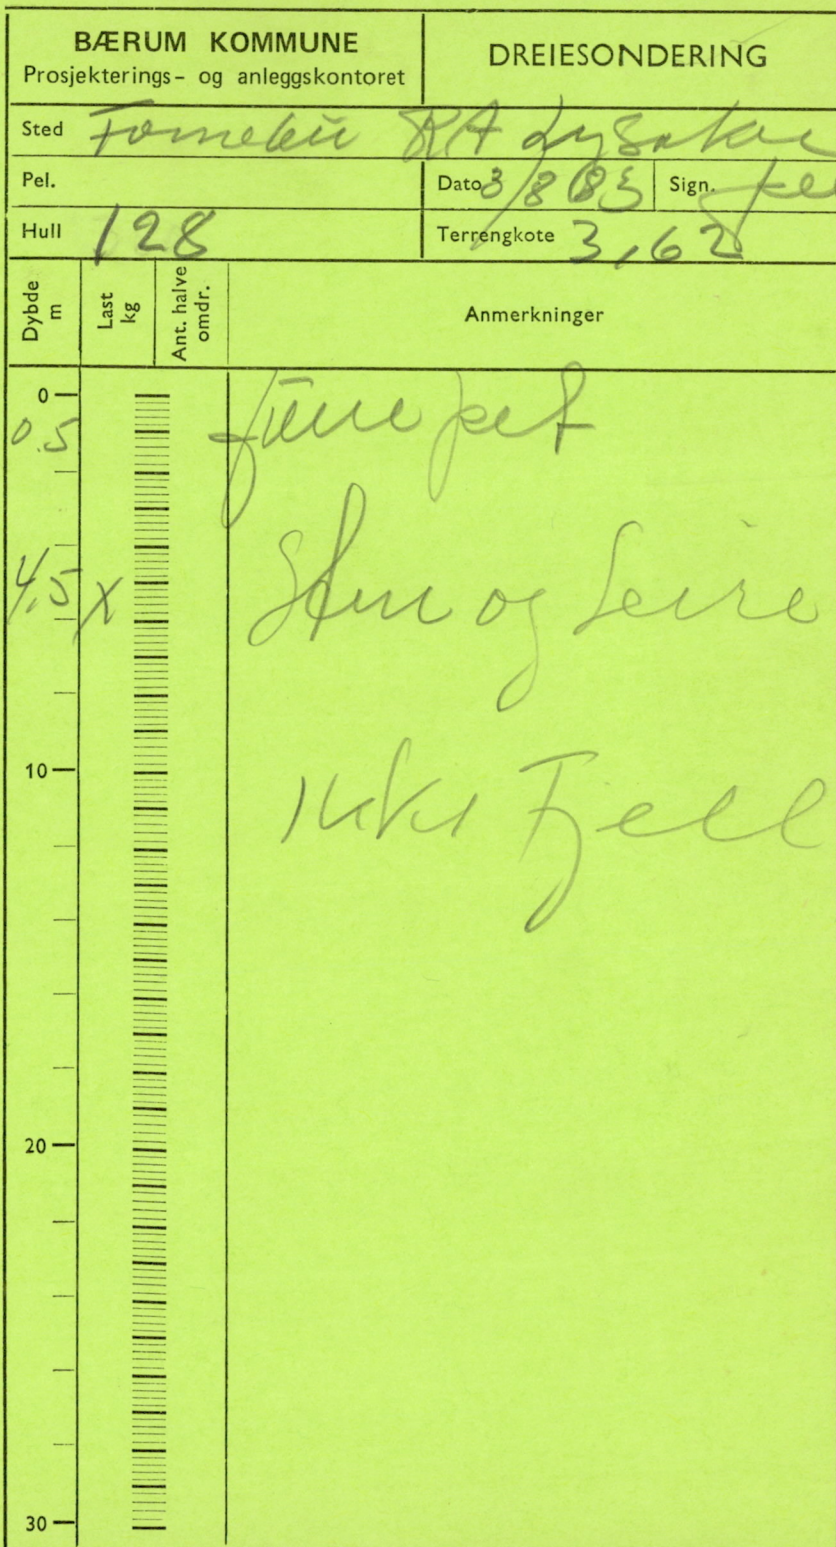 BÆRUM KOMMUNE
Prosjekterings- og anleggskontoret
DREIESONDERING
Sted Fornebu RA Lysaker
Pel.
Dato 3/8 83 Sign.
Hull 128
Terrengkote 3,62
Dybde m
Last kg
Ant. halve omdr.
Anmerkninger
0
0.5
4,5 X Sten og Leire
10 Ikke Fjell
20
30